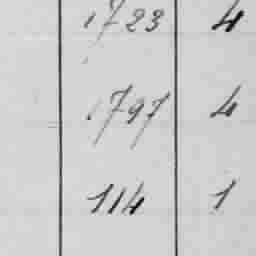 1723 4
1797 4
114 1